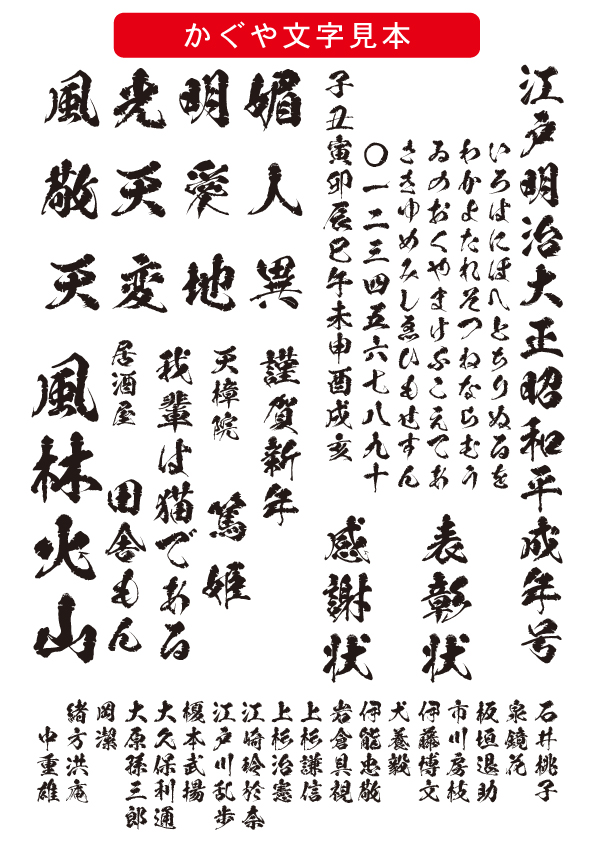 かぐや文字見本
江戸明治大正昭和平成年号
いろはにほへとちりぬるを
わかよたれそつねならむう
ゐのおくやまけふこえてあ
さきゆめみしゑひもせすん
〇一二三四五六七八九十
子丑寅卯辰巳午未申酉戌亥
表彰状
感謝状
媚人異
明愛地
光天変
風敬天
謹賀新年
天樟院 篤姫
我輩は猫である
居酒屋 田舎もん
風林火山
石井桃子
泉鏡花
板垣退助
市川房枝
伊藤博文
犬養毅
伊能忠敬
岩倉具視
上杉謙信
上杉治憲
江崎玲於奈
江戸川乱歩
榎本武揚
大久保利通
大原孫三郎
岡潔
緒方洪庵
中重雄